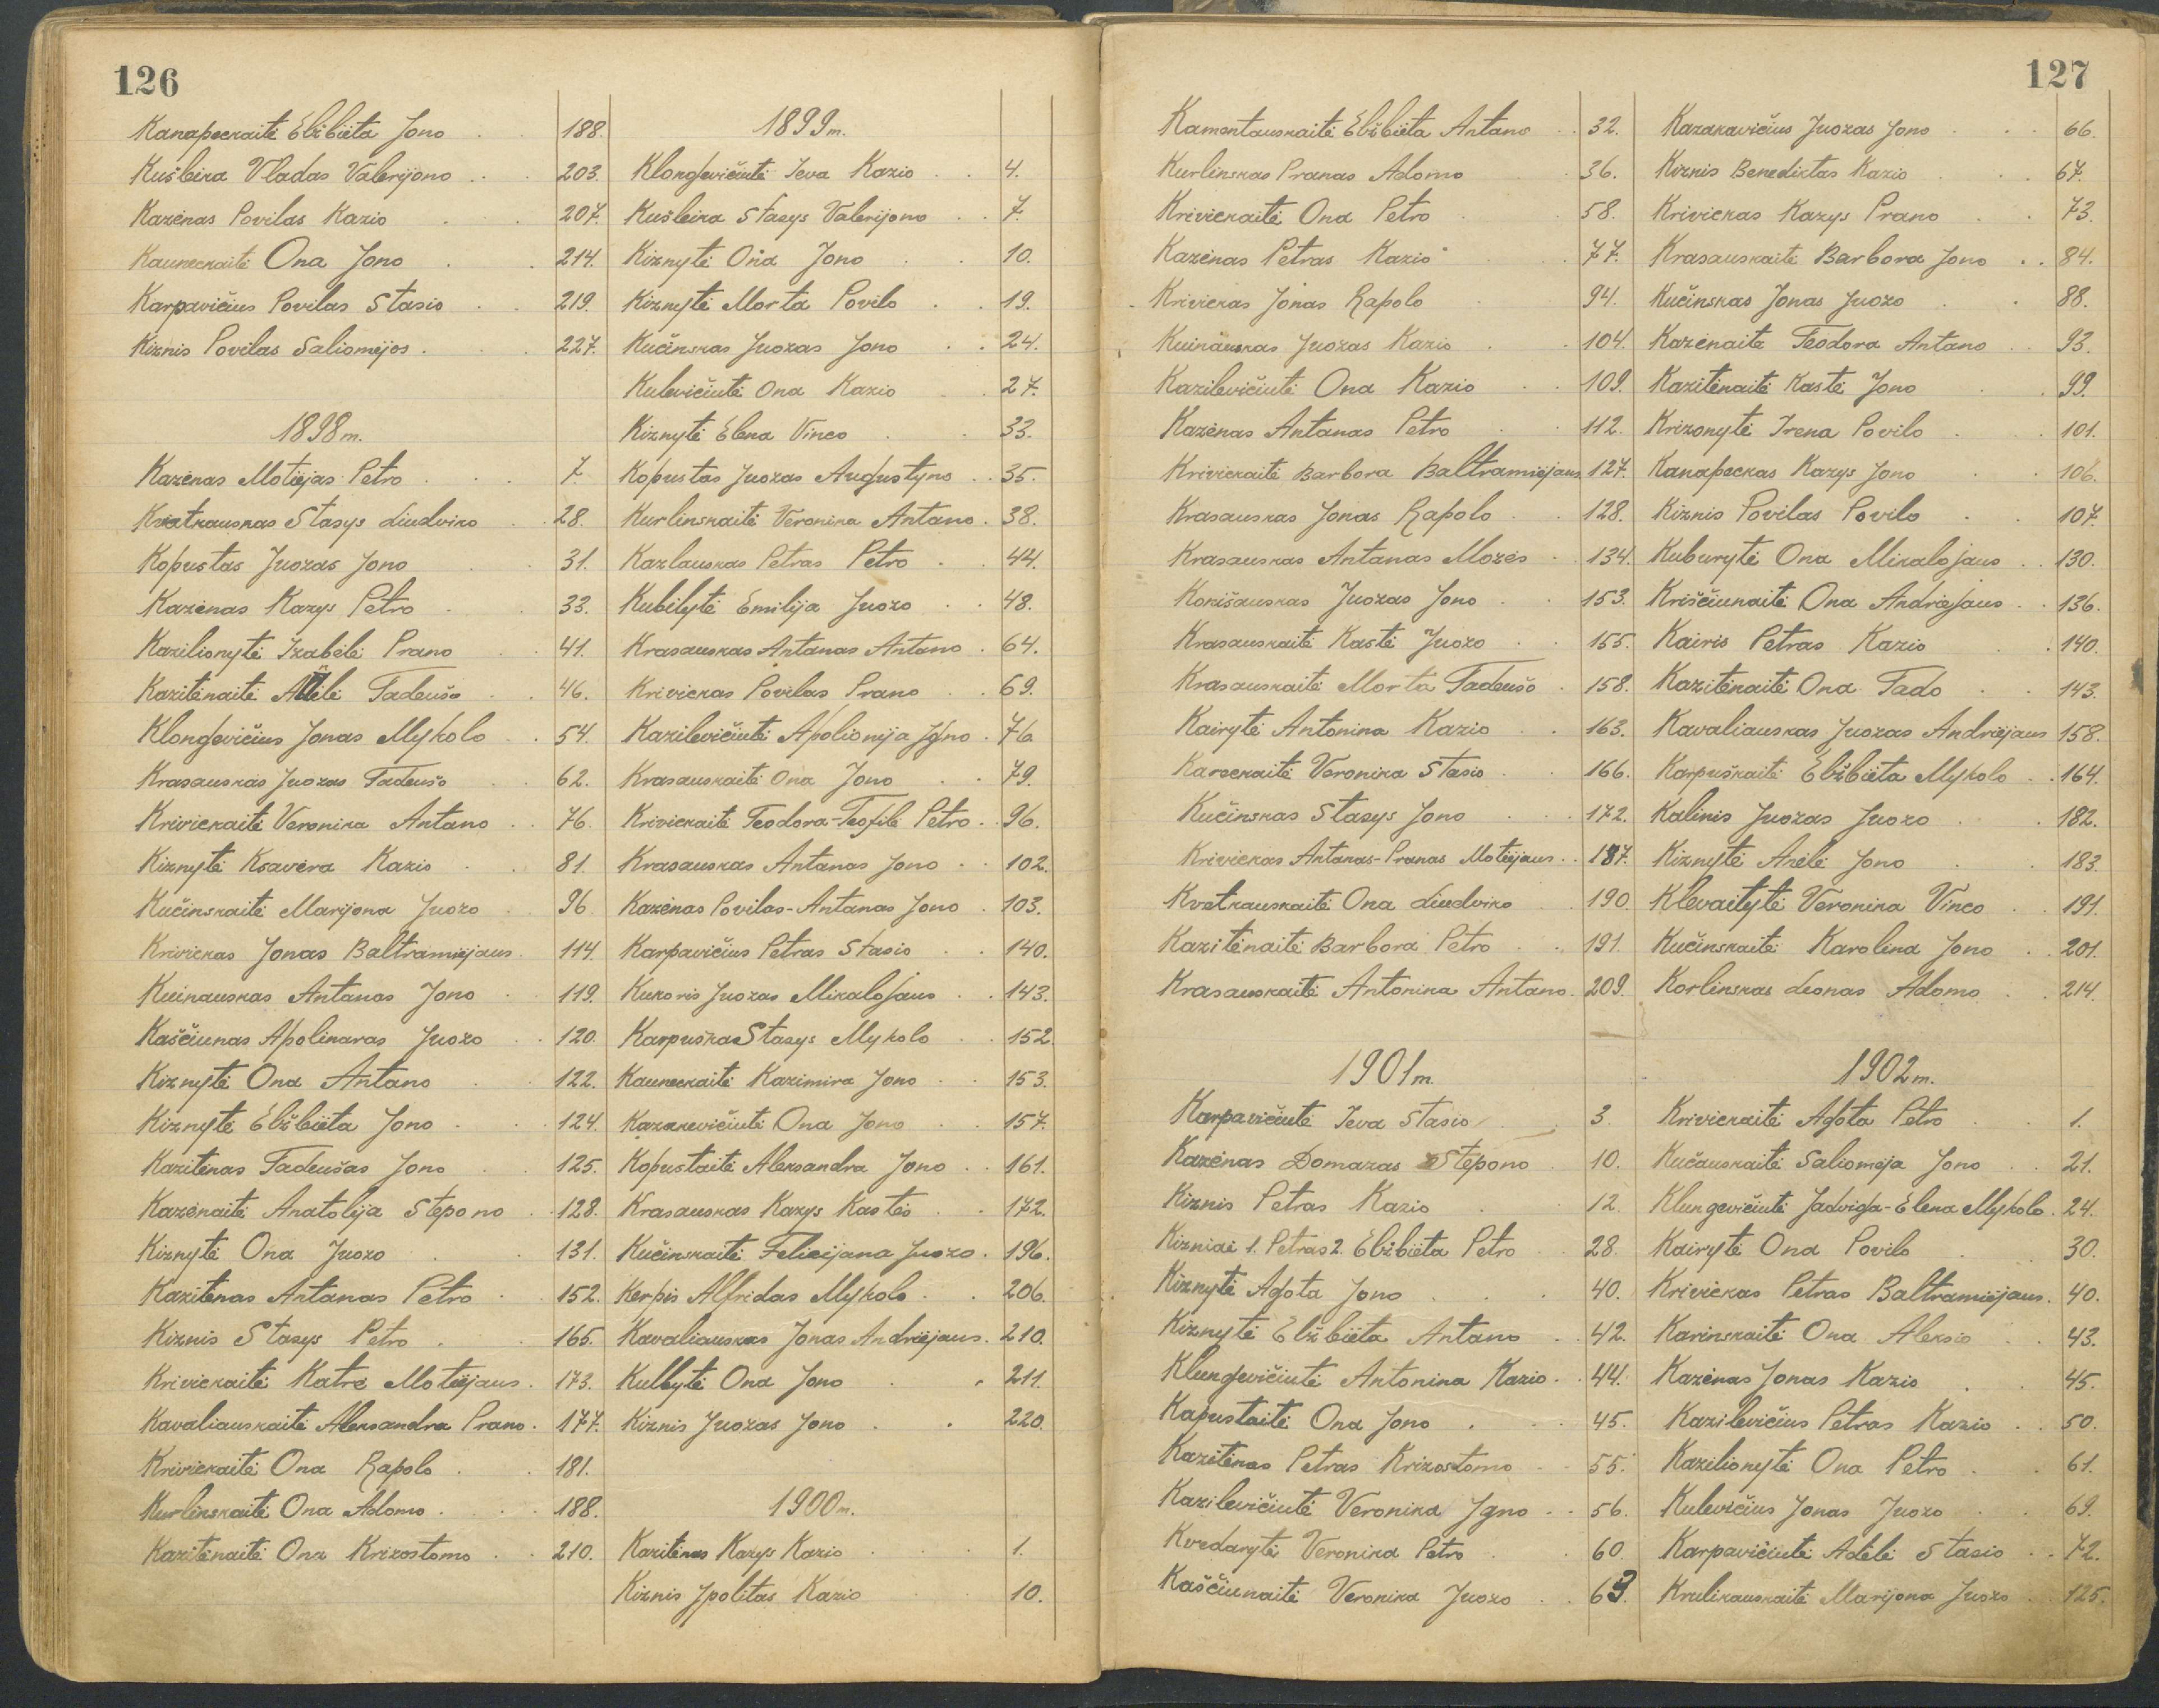 126
Kanapeckaitė Elžbieta Jono 188.
Kušleika Vladas Valerijono 203.
Kazėnas Povilas Kazio 207.
Kauneckaitė Ona Jono 214.
Karpavičius Povilas Stasio 219.
Kiznis Povilas Saliomėjos 227.
1898 m.
Kazėnas Motiejas Petro 7
Kvetkauskas Stasys Liudviko 28.
Kopustas Juozas Jono 31.
Kazėnas Kazys Petro 33.
Kazilionytė Izabėlė Prano 41.
Kazitėnaitė Anėlė Tadeušo 46.
Klongevičius Jonas Mykolo 54.
Krasauskas Juozas Tadeušo 62.
Krivickaitė Veronika Antano 76.
Kiznytė Ksavera Kazio 81.
Kučinskaitė Marijona Juozo 96
Krivickas Jonas Baltramiejaus 114.
Kuinauskas Antanas Jono 119.
Kaščiunas Apolinaras Juozo 120.
Kiznytė Ona Antano 122.
Kiznytė Elžbieta Jono 124.
Kazitėnas Tadeušas Jono 125.
Kazėnaitė Anatolija Stepono 128.
Kiznytė Ona Juozo 131.
Kazitėnas Antanas Petro 152.
Kiznis Stasys Petro 165.
Krivickaitė Katrė Motiejaus 173.
Kavaliauskaitė Aleksandra Prano 177.
Krivickaitė Ona Rapolo 181.
Kurlinskaitė Ona Adomo 188.
Kazitėnaitė Ona Krizostomo 210.
1899 m.
Klongevičiutė Ieva Kazio 4.
Kušleika Stasys Valerijono 7.
Kiznytė Ona Jono 10.
Kiznytė Morta Povilo 19.
Kučinskas Juozas Jono 24.
Kulevičiutė Ona Kazio 27.
Kiznytė Elena Vinco 33.
Kopustas Juozas Augustyno 35.
Kurlinskaitė Veronika Antano 38.
Kazlauskas Petras Petro 44.
Kubilytė Emilija Juozo 48.
Krasauskas Antanas Antano 64.
Krivickas Povilas Prano 69.
Kazilevičiutė Apolionija Igno 76
Krasauskaitė Ona Jono 79.
Krivickaitė Teodora-Teofilė Petro 96.
Krasauskas Antanas Jono 102.
Kazėnas Povilas-Antanas Jono 103.
Karpavičius Petras Stasio 140.
Kukoris Juozas Mikalojaus 143.
Karpuška Stasys Mykolo 152
Kauneckaitė Kazimira Jono 153.
Kazakevičiutė Ona Jono 157.
Kopustaitė Aleksandra Jono 161.
Krasauskas Kazys Kastės 172.
Kučinskaitė Felicijana Juozo 196.
Kerpis Alfridas Mykolo 206.
Kavaliauskas Jonas Andriejaus 210.
Kulbytė Ona Jono 211.
Kiznis Juozas Jono 220.
1900 m.
Kazitėnas Kazys Kazio 1.
Kiznis Ipolitas Kazio 10.
127
Kamentauskaitė Elžbieta Antano 32.
Kurlinskas Pranas Adomo 36.
Krivickaitė Ona Petro 58.
Kazėnas Petras Kazio 77.
Krivickas Jonas Rapolo 94.
Kuinauskas Juozas Kazio 104.
Kazilevičiutė Ona Kazio 109.
Kazėnas Antanas Petro 112.
Krivickaitė Barbora Baltramiejaus 127.
Krasauskas Jonas Rapolo 128.
Krasauskas Antanas Mozės 134.
Kokišauskas Juozas Jono 153.
Krasauskaitė Kastė Juozo 155.
Krasauskaitė Morta Tadeušo 158.
Kairytė Antonina Kazio 163.
Kareckaitė Veronika Stasio 166.
Kučinskas Stasys Jono 172.
Krivickas Antanas-Pranas Motiejaus 187.
Kvetkauskaitė Ona Liudviko 190.
Kazitėnaitė Barbora Petro 191.
Krasauskaitė Antonina Antano 209.
1901 m.
Karpavičiutė Ieva Stasio 3.
Kazėnas Domazas Stepono 10.
Kiznis Petras Kazio 12.
Kizniai 1. Petras 2. Elžbieta Petro 28.
Kiznytė Agota Jono 40.
Kiznytė Elžbieta Antano 42.
Klungevičiutė Antonina Kazio 44.
Kapustaitė Ona Jono 45.
Kazitėnas Petras Krizostomo 55.
Kazilevičiutė Veronika Igno 56.
Kvedarytė Veronika Petro 60.
Kaščiunaitė Veronika Juozo 63.
Kazakavičius Juozas Jono 66.
Kiznis Benediktas Kazio 67.
Krivickas Kazys Prano 73.
Krasauskaitė Barbora Jono 84.
Kučinskas Jonas Juozo 88.
Kazėnaitė Teodora Antano 93.
Kazitėnaitė Kastė Jono 99.
Krizonytė Irena Povilo 101.
Kanapeckas Kazys Jono 106.
Kiznis Povilas Povilo 107.
Kuburytė Ona Mikalojaus 130.
Kriščiunaitė Ona Andriejaus 136.
Kairis Petras Kazio 140.
Kazitėnaitė Ona Tado 143.
Kavaliauskas Juozas Andriejaus 158.
Karpuškaitė Elžbieta Mykolo 164.
Kalinis Juozas Juozo 182.
Kiznytė Anėlė Jono 183.
Klevaitytė Veronika Vinco 191.
Kučinskaitė Karolina Jono 201.
Korlinskas Leonas Adomo 214.
1902 m.
Krivickaitė Agota Petro 1.
Kučauskaitė Saliomėja Jono 21.
Klungevičiutė Jadviga-Elena Mykolo 24.
Kairytė Ona Povilo 30.
Krivickas Petras Baltramiejaus 40.
Karinskaitė Ona Aleksio 43.
Kazėnas Jonas Kazio 45.
Kazilevičius Petras Kazio 50.
Kazilionytė Ona Petro 61.
Kulevičius Jonas Juozo 69.
Karpavičiutė Adėlė Stasio 72.
Krulikauskaitė Marijona Juozo 125.